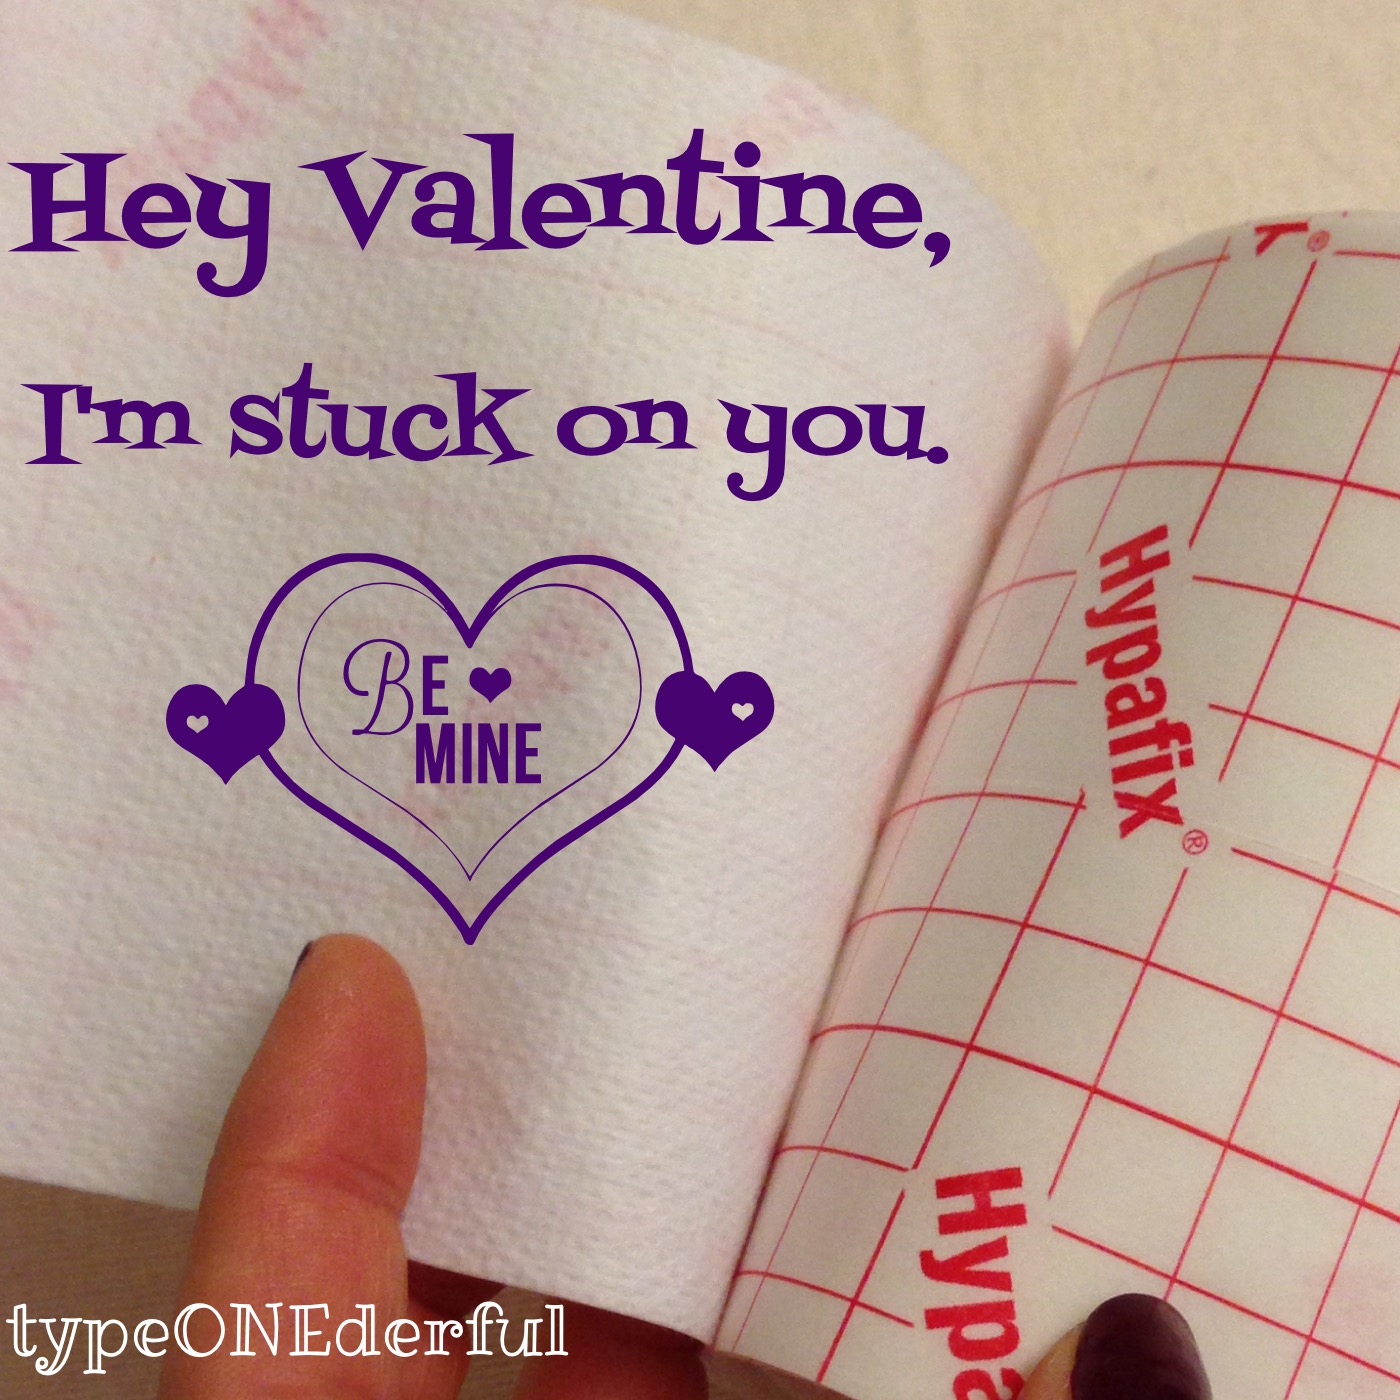 Hey Valentine,
I'm stuck on you.
Be
MINE
Hypafix®
Hypa
typeONEderful